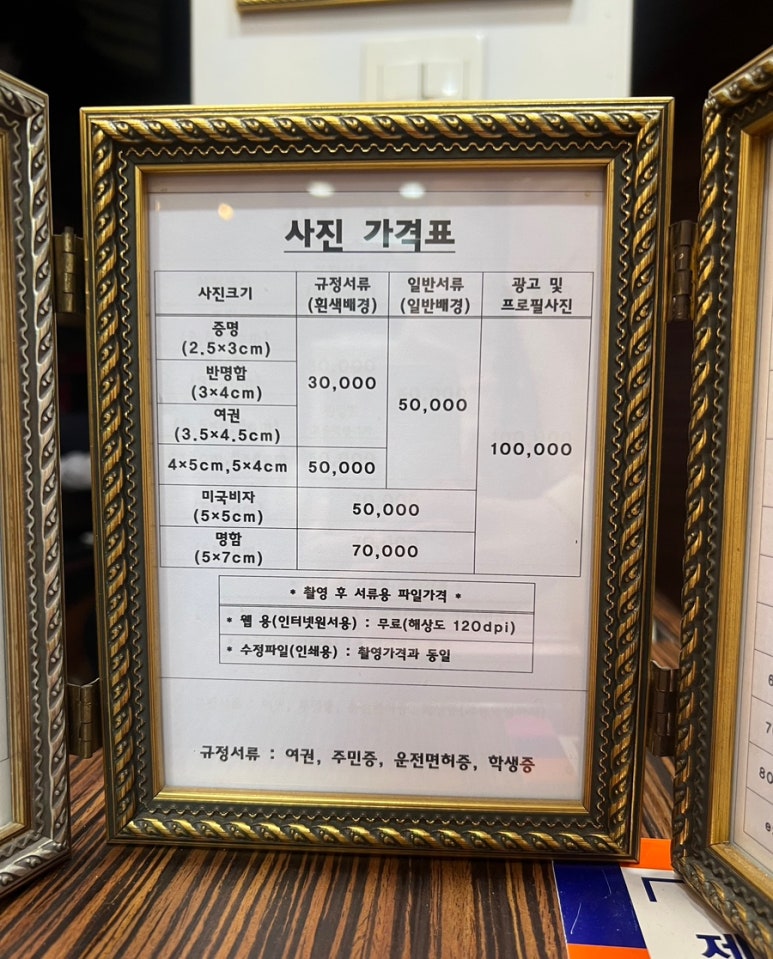 사진 가격표
사진크기
규정서류
(흰색배경)
일반서류
(일반배경)
광고 및
프로필사진
증명
(2.5×3cm)
반명함
(3×4cm)
30,000
여권
(3.5×4.5cm)
50,000
100,000
4×5cm,5×4cm
50,000
미국비자
(5×5cm)
50,000
명함
(5×7cm)
70,000
* 촬영 후 서류용 파일가격 *
* 웹 용(인터넷원서용) : 무료(해상도 120dpi)
* 수정파일(인쇄용) : 촬영가격과 동일
규정서류 : 여권, 주민증, 운전면허증, 학생증